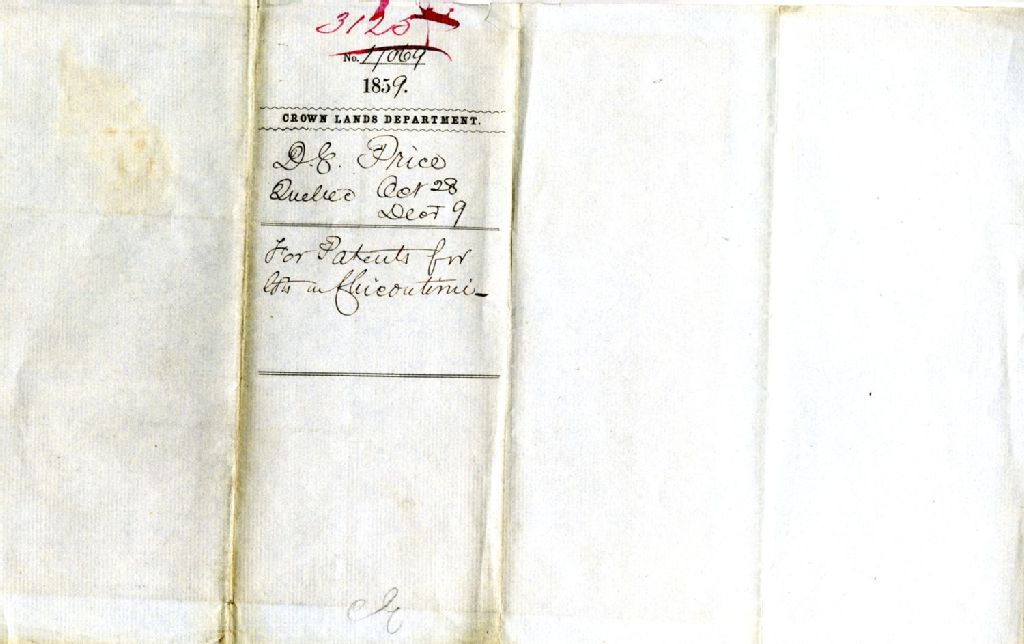 3125
No. 11069
1859.
CROWN LANDS DEPARTMENT.
D.E. Price
Quebec Oct 28
Dect 9
For Patents for
lots in Chicoutimi_